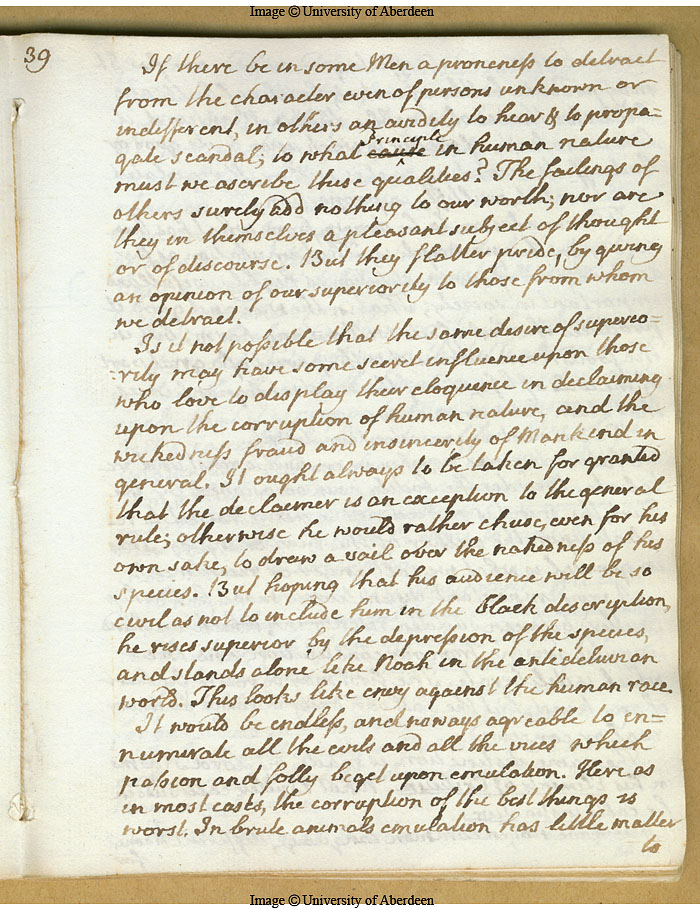 Image © University of Aberdeen
39
If there be in some Men a proneness to detract
from the character even of persons unknown or
indifferent, in others an avidity to hear & to propa=
Principle
gate scandal; to what cause in human nature
must we ascribe these qualities? The failings of
others surely add nothing to our worth; nor are
they in themselves a pleasant subject of thought
or of discourse. But they flatter pride, by giving
an opinion of our superiority to those from whom
we detract.
Is it not possible that the same desire of superio=
-rity may have some secret influence upon those
who love to display their eloquence in declaiming
upon the corruption of human nature, and the
wickedness fraud and insincerity of Mankind in
general. It ought always to be taken for granted
that the declaimer is an exception to the general
rule; otherwise he would rather chuse, even for his
own sake, to draw a vail over the nakedness of his
species. But hoping that his audience will be so
civil as not to include him in the black description,
he rises superior by the depression of the species,
and stands alone like Noah in the antideluvian
world. This looks like envy against the human race.
It would be endless, and noways agreable to en=
numerate all the evils and all the vices which
passion and folly beget upon emulation. Here as
in most cases, the corruption of the best things is
worst. In brute animals emulation has little matter
to
Image © University of Aberdeen